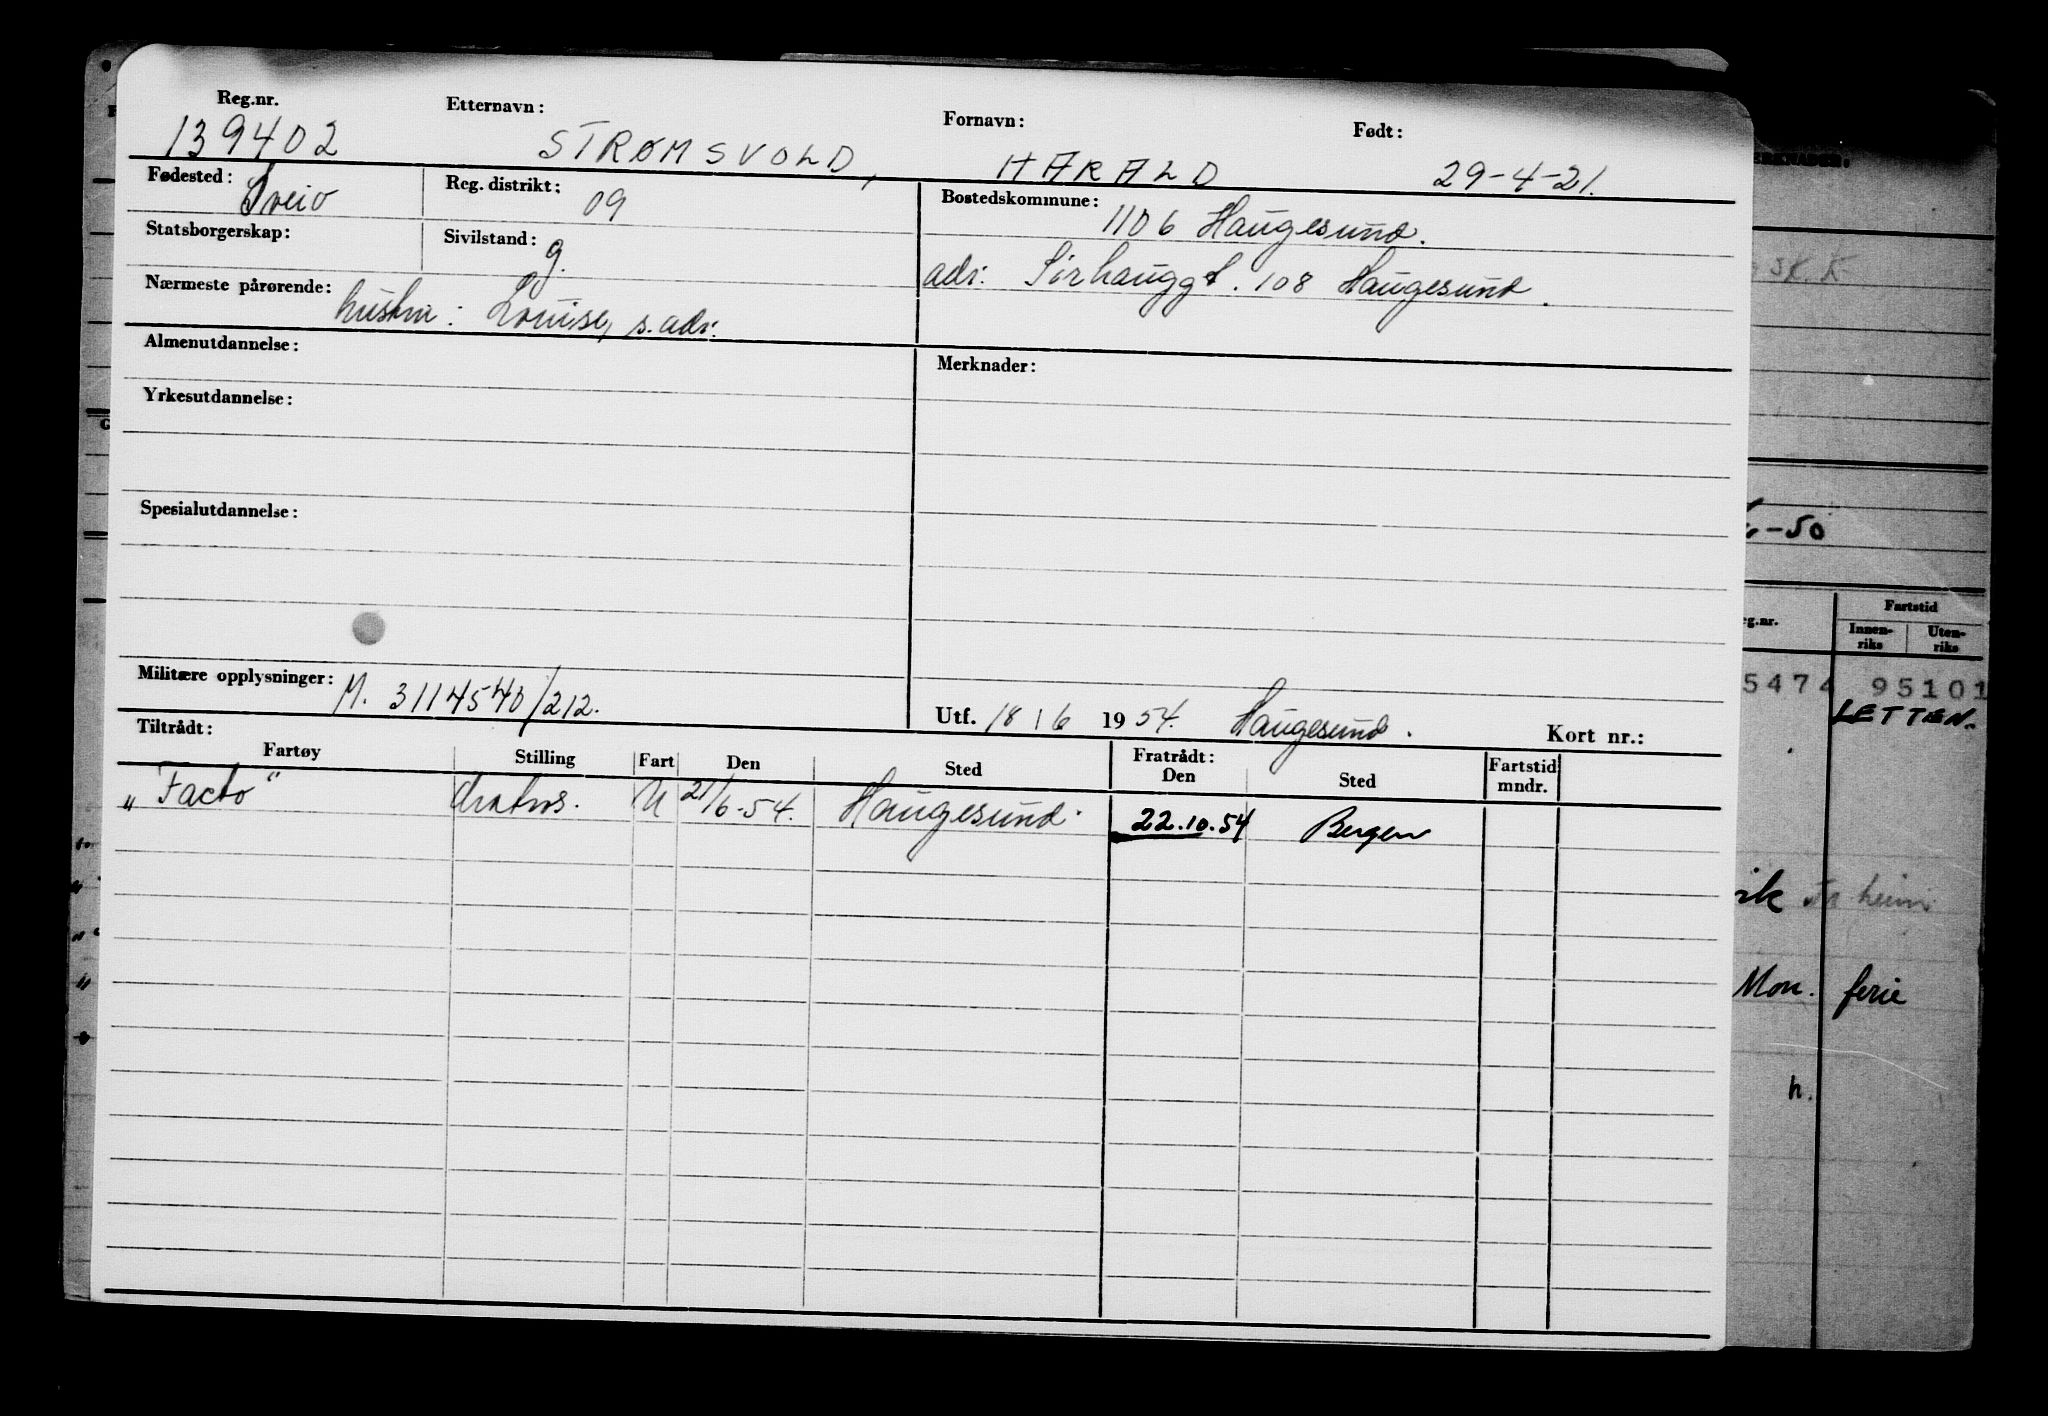 Reg.nr. Etternavn: Fornavn: Født:
139402 STRØMSVOLD, HARALD 29-4-21.
Fødested: Sveio Reg. distrikt: 09 Bostedskommune: 1106 Haugesund.
Statsborgerskap: Sivilstand: g. adr: Sørhauggt. 108 Haugesund.
Nærmeste pårørende: hustru: Louise, s. adr.
Almenutdannelse: Merknader:
Yrkesutdannelse:
Spesialutdannelse:
Militære opplysninger: M. 3114540/212.
Utf. 18/6 1954. Haugesund. Kort nr.:
Tiltrådt: Fratrådt:
Fartøy Stilling Fart Den Sted Den Sted Fartstid mndr.
"Facto" U 21/6-54. Haugesund. 22.10.54 Bergen
ERKNADER:
SK. K
-50
eg.nr. Fartstid
Innen-riks Uten-riks
5474 95101
LETTEN.
vik
Mon. ferie
h.